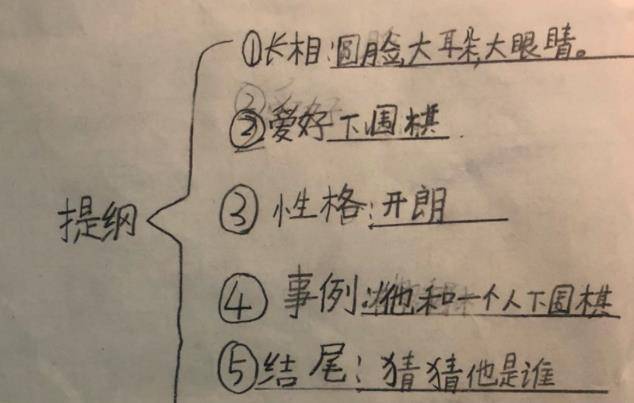 ①长相:圆脸,大耳朵,大眼睛。
②爱好下围棋.
提纲
③性格:开朗
④事例:他和一个人下围棋
⑤结尾:猜猜他是谁